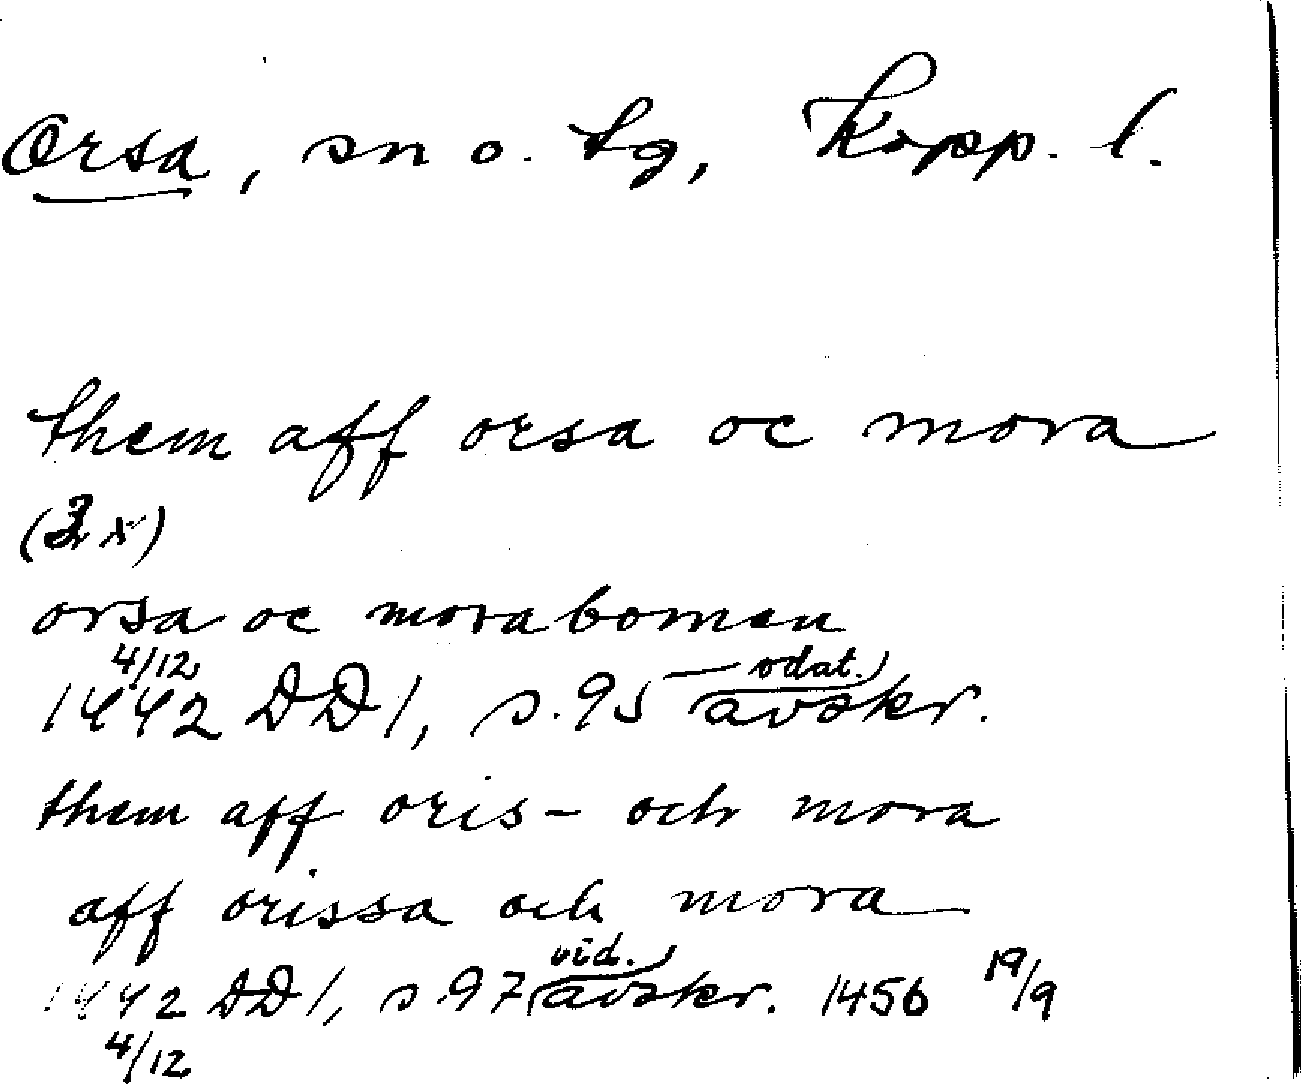 Orsa, sn o. tg, Kopp. l.
them aff orsa oc mora
(3x)
orsa oc morabomen
4/12 odat.
1442 DD 1, s. 95 avskr.
them aff oris- och mora
aff orissa och mora
vid.
1442 DD 1, s. 97 avskr. 1456 19/9
4/12